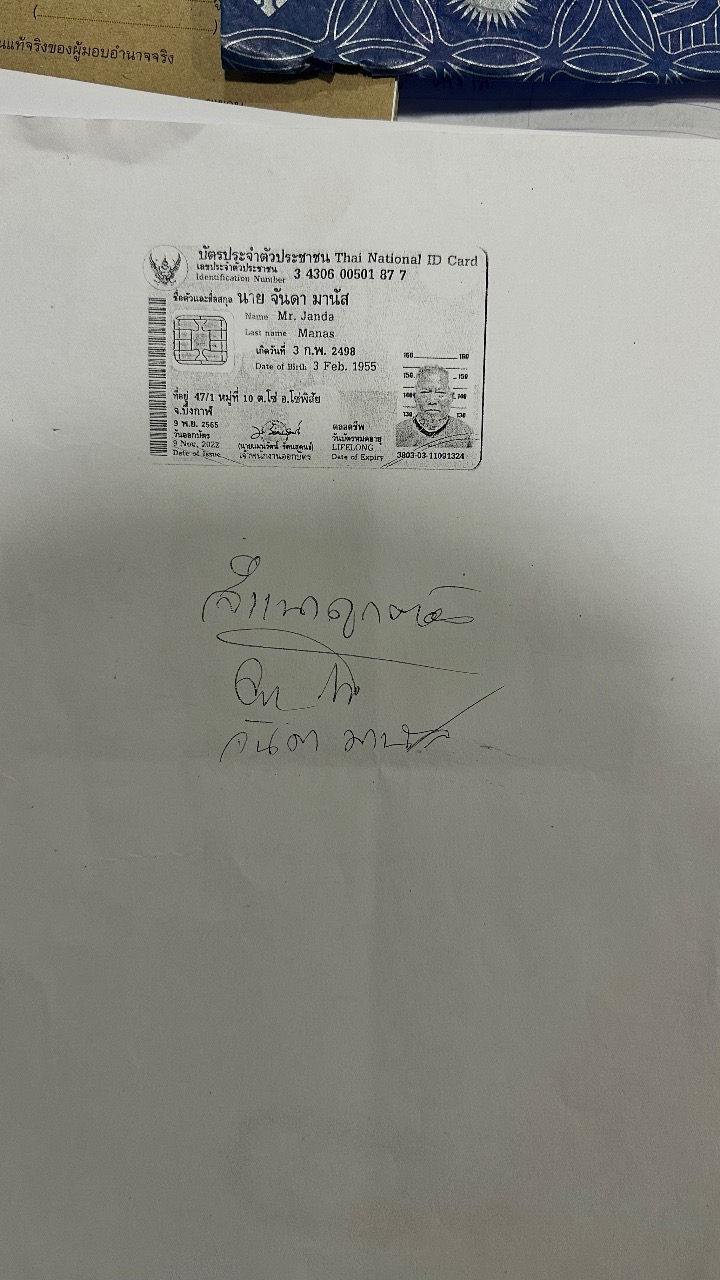 (........................................)
นแท้จริงของผู้มอบอำนาจจริง
บัตรประจำตัวประชาชน Thai National ID Card
เลขประจำตัวประชาชน
Identification Number 3 4306 00501 87 7
ชื่อตัวและชื่อสกุล นาย จันดา มานัส
Name Mr. Janda
Last name Manas
เกิดวันที่ 3 ก.พ. 2498
Date of Birth 3 Feb. 1955
ที่อยู่ 47/1 หมู่ที่ 10 ต.โซ่ อ.โซ่พิสัย
จ.บึงกาฬ
9 พ.ย. 2565
วันออกบัตร
9 Nov. 2022
Date of Issue
เจ้าพนักงานออกบัตร
ตลอดชีพ
วันบัตรหมดอายุ
LIFELONG
Date of Expiry
160 160
150 150
140 140
130 130
3803-03-11091324
สำเนาถูกต้อง
จันดา มานัส